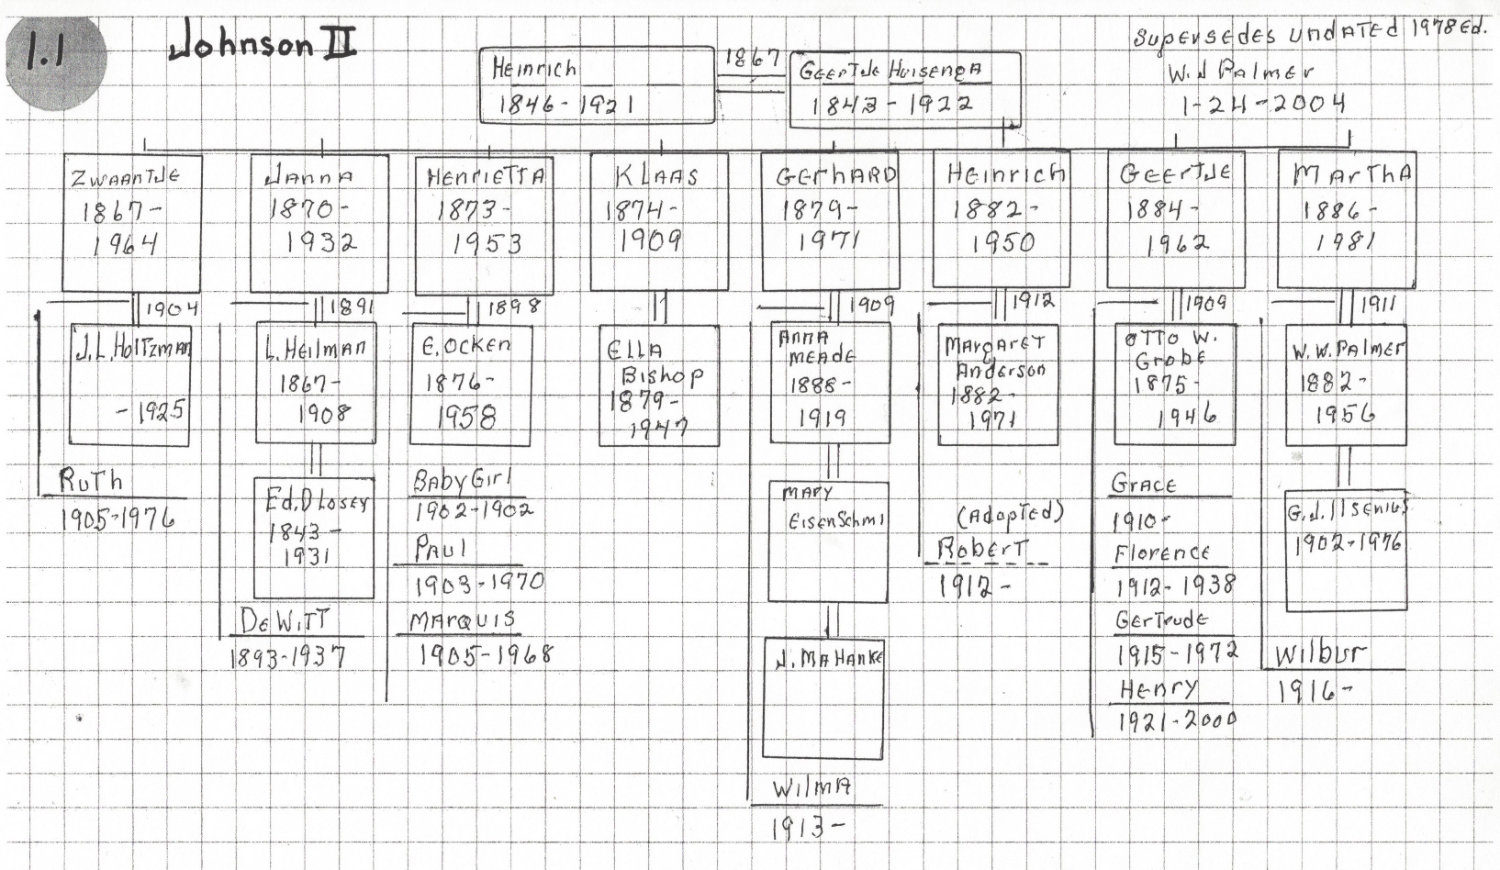 1.1
Johnson II
Supersedes undated 1978 Ed.
W. J Palmer
1-24-2004
Heinrich
1846-1921
1867
Geertje Huisenga
1843-1922
Zwaantje
1867-
1964
Janna
1870-
1932
Henrietta
1873-
1953
Klaas
1874-
1909
Gerhard
1879-
1971
Heinrich
1882-
1950
Geertje
1884-
1962
Martha
1886-
1981
1904
1891
1898
1909
1912
1909
1911
J. L. Holtzman
-1925
L. Heilman
1867-
1908
E. Ocken
1876-
1958
Ella
Bishop
1879-
1947
Anna
Meade
1888-
1919
Margaret
Anderson
1882-
1971
Otto W.
Grobe
1875-
1946
W. W. Palmer
1882-
1956
Ruth
1905-1976
Ed. D Losey
1843-
1931
DeWitt
1893-1937
Baby Girl
1902-1902
Paul
1903-1970
Marquis
1905-1968
Mary
Eisenschmi
J. Mahanke
Wilma
1913-
(Adopted)
Robert
1912-
Grace
1910-
Florence
1912-1938
Gertrude
1915-1972
Henry
1921-2000
G. J. Ilsenius
1902-1976
Wilbur
1916-